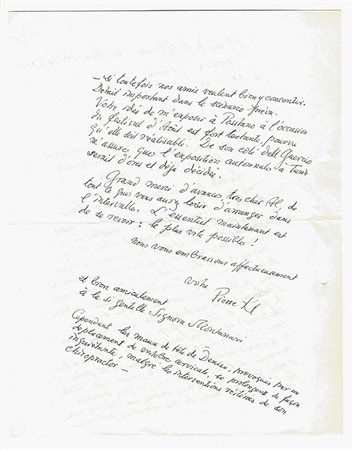 — si toutefois nos amis veulent bien y consentir.
Détail important dans le
Votre idée de m'exposer à Positano à l'occasion
du festival d'Août est fort tentante, pourvu
qu'elle soit réalisable. De son côté dell'Guercio
m'assure, que l'exposition automnale à Turin
serait d'ores et déjà décidée.
Grand merci d'avance, bien cher Al de
tout ce que vous aurez loisir d'arranger dans
l'intervalle. L'essentiel maintenant est
de se revoir: le plus vite possible!
nous vous embrassons affectueusement
votre Pierre Kl
et bien amicalement
à la si gentille Signora Montanari
Cependant les maux de tête de Denise, provoqués par un
déplacement de vertèbre cervicale, se prolongent de façon
inquiétante, malgré les interventions de son
chiropractor —